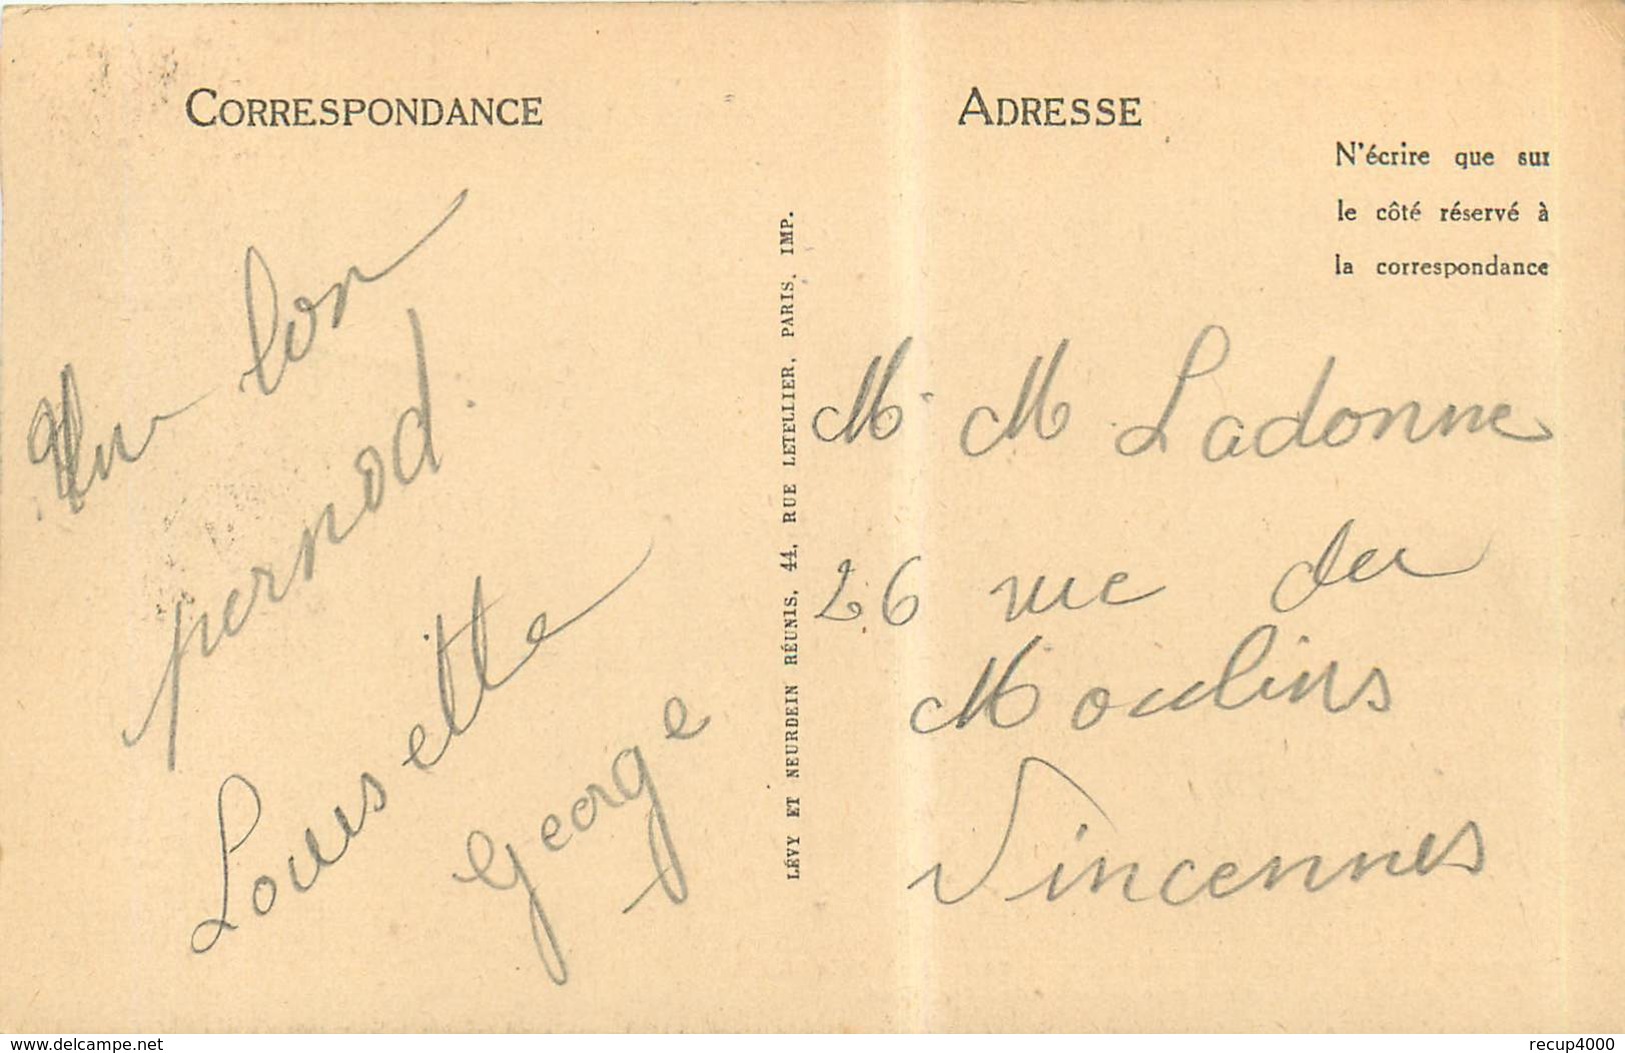 CORRESPONDANCE
Un bon
pernod.
Lousette
George
LÉVY ET NEURDEIN RÉUNIS, 44, RUE LETELLIER, PARIS, IMP.
ADRESSE
N'écrire que sur
le côté réservé à
la correspondance
M. M Ladonne
26 rue du
Moulins
Vincennes
www.delcampe.net
recup4000